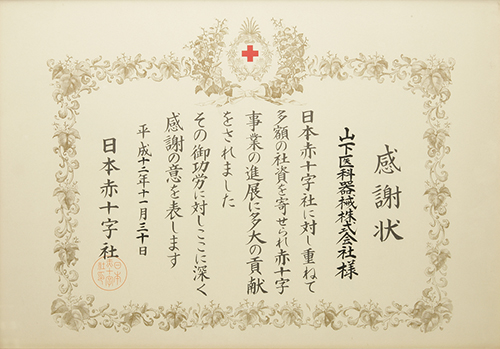 感謝状
山下医科器械株式会社様
日本赤十字社に対し重ねて
多額の社資を寄せられ赤十字
事業の進展に多大の貢献
をされました
その御功労に対しここに深く
感謝の意を表します
平成十二年十一月三十日
日本赤十字社